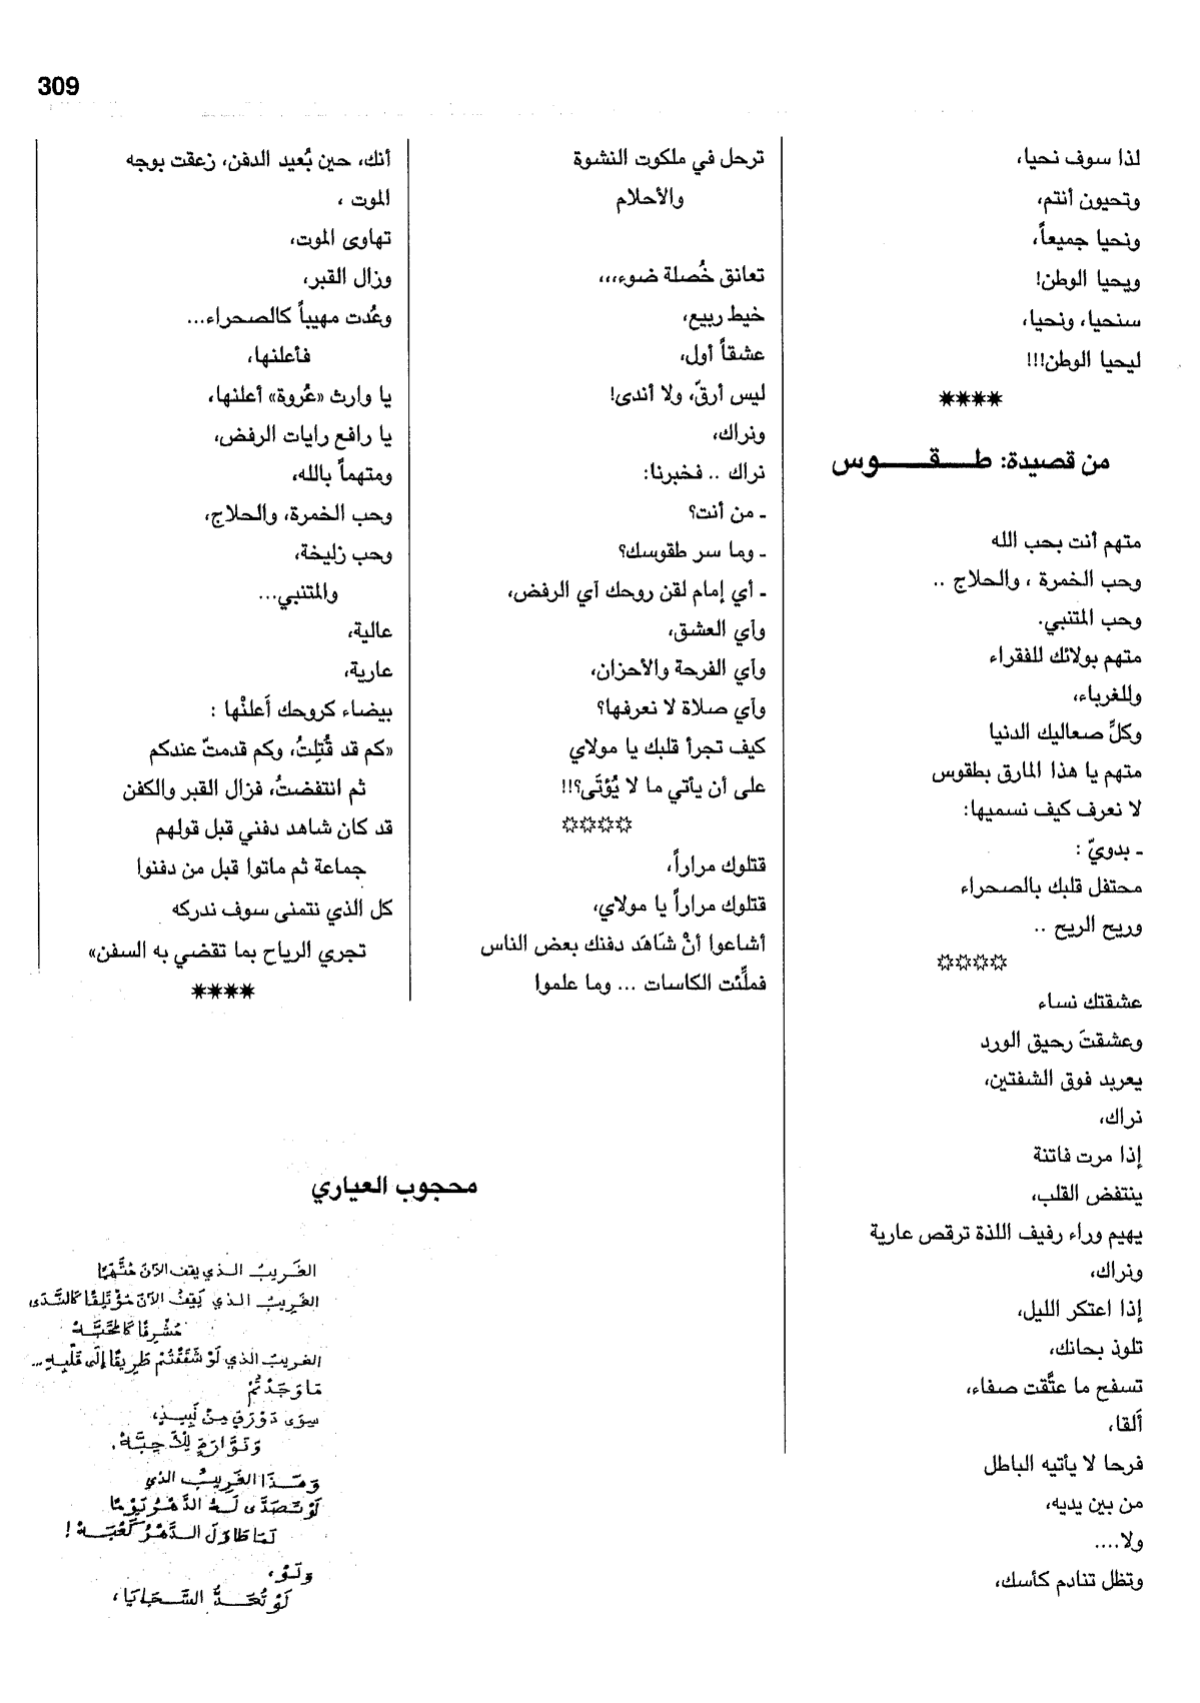 309
لذا سوف نحيا،
وتحيون أنتم،
ونحيا جميعاً،
ويحيا الوطن!
سنحيا، ونحيا،
ليحيا الوطن!!!
****
من قصيدة: طـــقــــوس
متهم أنت بحب الله
وحب الخمرة ، والحلاج ..
وحب المتنبي.
متهم بولائك للفقراء
وللغرباء،
وكلِّ صعاليك الدنيا
متهم يا هذا المارق بطقوس
لا نعرف كيف نسميها:
ـ بدويّ :
محتفل قلبك بالصحراء
وريح الريح ..
☼☼☼☼
عشقتك نساء
وعشقتَ رحيق الورد
يعربد فوق الشفتين،
نراك،
إذا مرت فاتنة
ينتفض القلب،
يهيم وراء رفيف اللذة ترقص عارية
ونراك،
إذا اعتكر الليل،
تلوذ بحانك،
تسفح ما عتَّقت صفاء،
أَلقا،
فرحا لا يأتيه الباطل
من بين يديه،
ولا....
وتظل تنادم كأسك،
ترحل في ملكوت النشوة
والأحلام
تعانق خُصلة ضوء،،،
خيط ربيع،
عشقاً أول،
ليس أرقّ، ولا أندى!
ونراك،
نراك .. فخبرنا:
ـ من أنت؟
ـ وما سر طقوسك؟
ـ أي إمام لقن روحك آي الرفض،
وآي العشق،
وآي الفرحة والأحزان،
وآي صلاة لا نعرفها؟
كيف تجرأ قلبك يا مولاي
على أن يأتي ما لا يُؤتَى؟!!
☼☼☼☼
قتلوك مراراً،
قتلوك مراراً يا مولاي،
أشاعوا أنْ شَاهَد دفنك بعض الناس
فملِّئت الكاسات ... وما علموا
أنك، حين بُعيد الدفن، زعقت بوجه
الموت ،
تهاوى الموت،
وزال القبر،
وعُدت مهيباً كالصحراء...
فأعلنها،
يا وارث «عُروة» أعلنها،
يا رافع رايات الرفض،
ومتهماً بالله،
وحب الخمرة، والحلاج،
وحب زليخة،
والمتنبي...
عالية،
عارية،
بيضاء كروحك أَعلنْها :
«كم قد قُتِلتُ، وكم قدمتّ عندكم
ثم انتفضتُ، فزال القبر والكفن
قد كان شاهد دفني قبل قولهم
جماعة ثم ماتوا قبل من دفنوا
كل الذي نتمنى سوف ندركه
تجري الرياح بما تقضي به السفن»
****
محجوب العياري
الغَرِيبُ الذي يقف الآنَ مُتَّهَمًا
الغَرِيبُ الذي يَقِفُ الآنَ مُؤْتَلِقًا كَالنَّدَى
مُشْرِقًا كَالمَحَبَّهْ
الغريبُ الذي لَوْ شَقَقْتُمْ طَرِيقًا إِلَى قَلْبِهِ...
مَا وَجَدْتُمُ
سِوَى دَوْرَقٍ مِنْ نَبِيذٍ،
وَنَوَّارَمٍ لِلْأَحِبَّهْ.
وَهَذَا الغَرِيبُ الذي
لَوْ تَصَدَّى لَهُ الدَّهْرُ يَوْمًا
لَمَا طَاوَلَ الدَّهْرُ كَعْبَهْ!
وَلَوْ،
لَوْ تُعَدُّ السَّجَايَا،